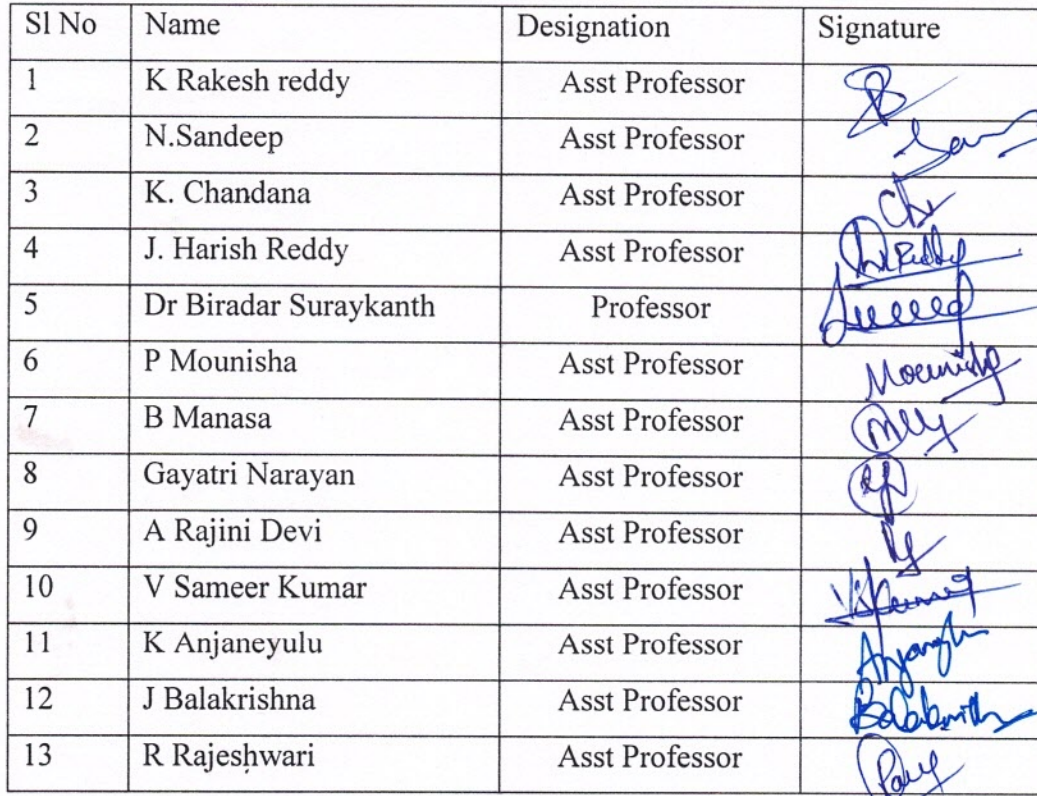 Sl No Name Designation Signature
1 K Rakesh reddy Asst Professor
2 N.Sandeep Asst Professor
3 K. Chandana Asst Professor
4 J. Harish Reddy Asst Professor
5 Dr Biradar Suraykanth Professor
6 P Mounisha Asst Professor Mounisha
7 B Manasa Asst Professor
8 Gayatri Narayan Asst Professor
9 A Rajini Devi Asst Professor
10 V Sameer Kumar Asst Professor
11 K Anjaneyulu Asst Professor
12 J Balakrishna Asst Professor
13 R Rajeshwari Asst Professor